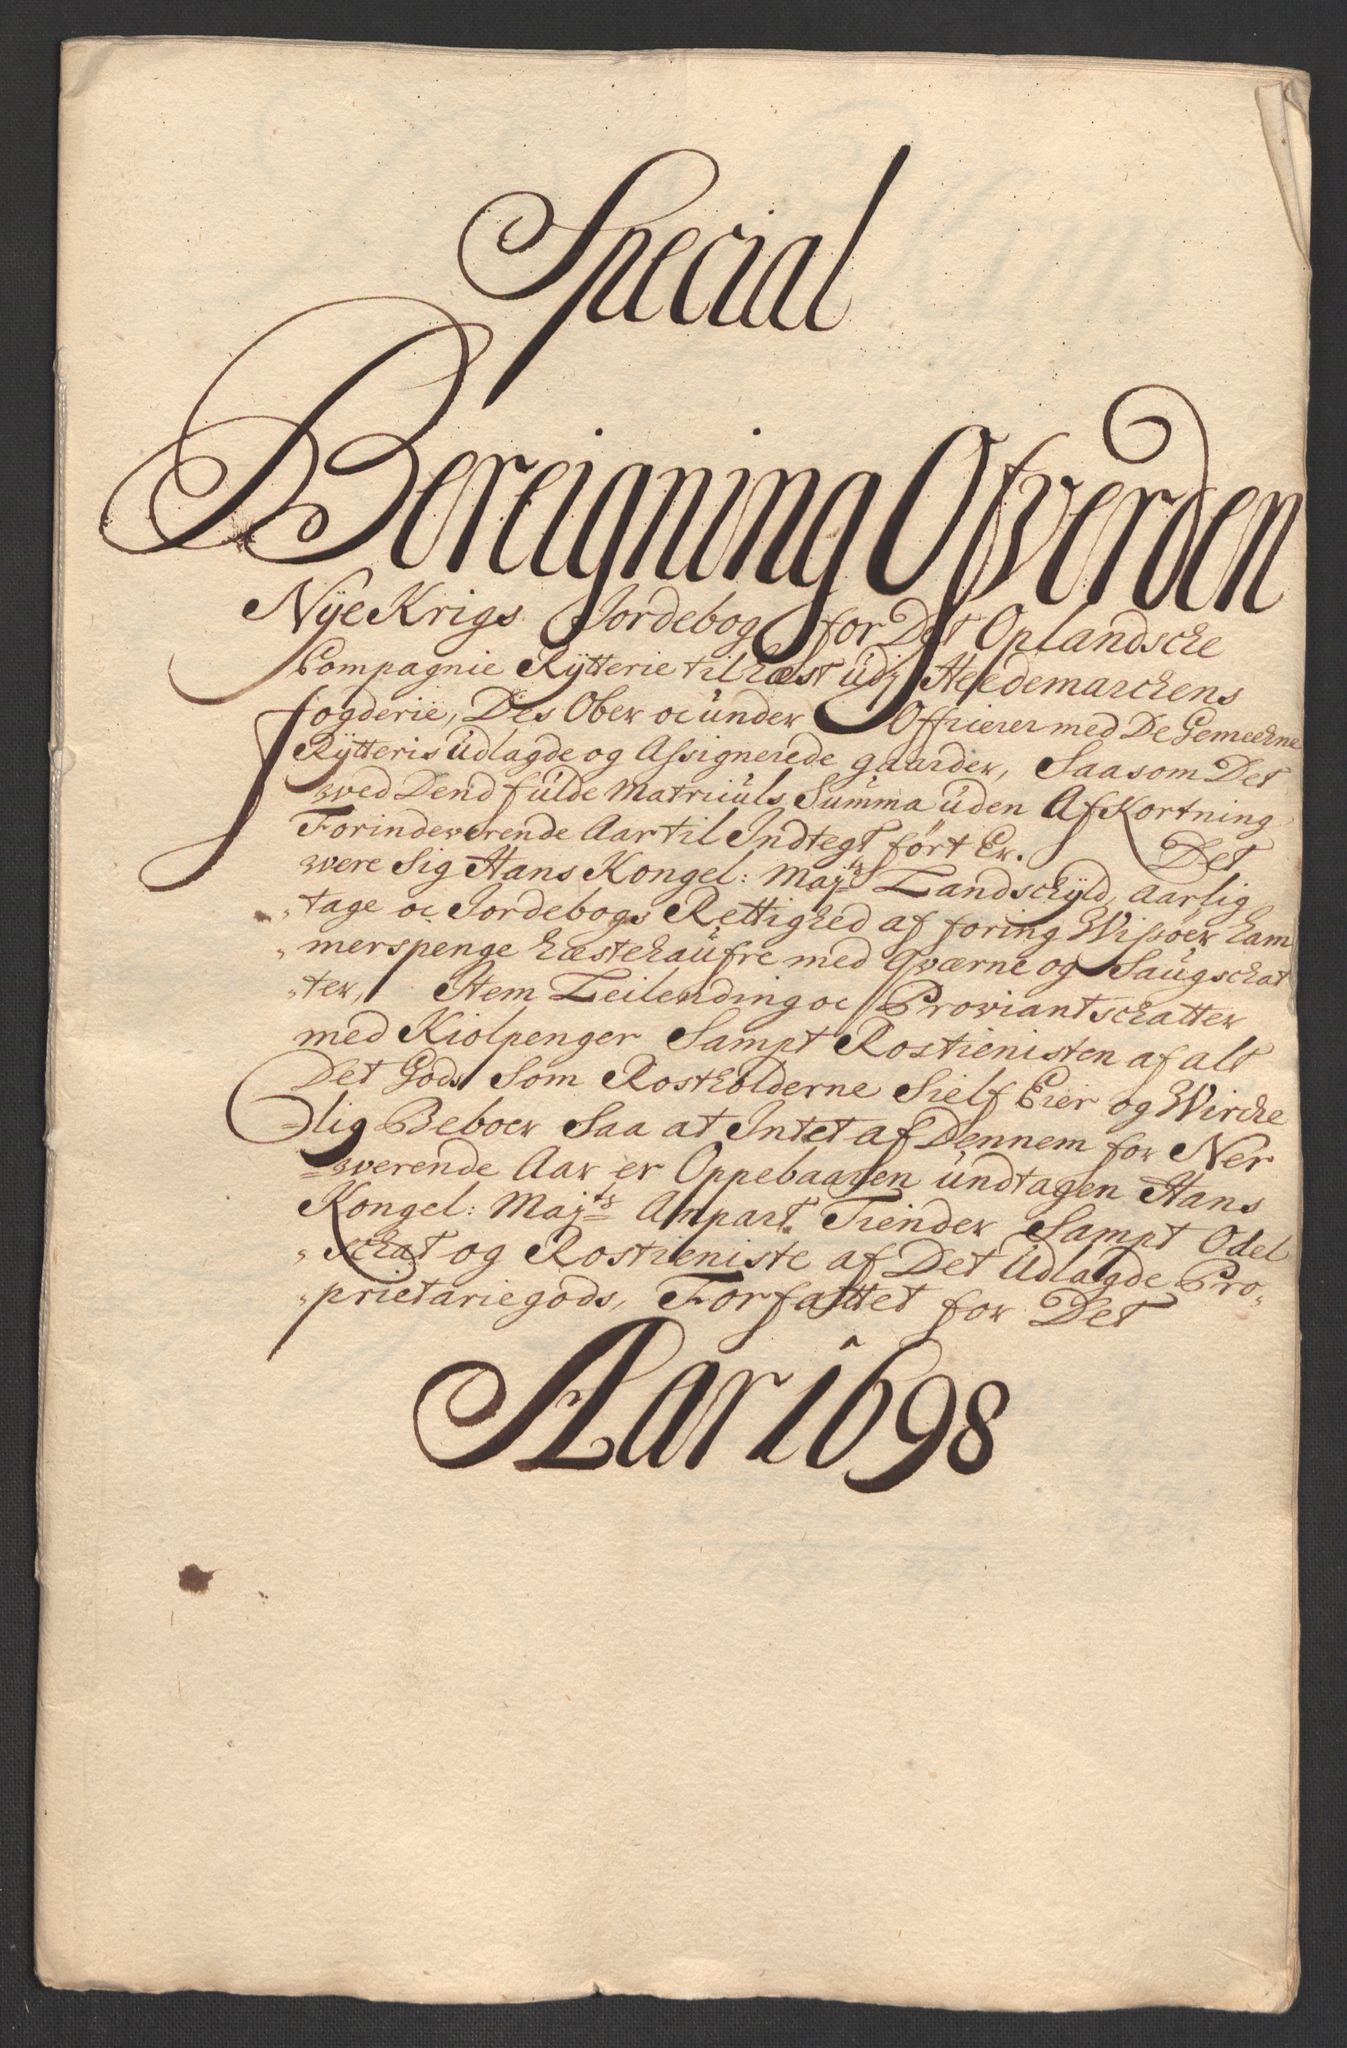 Special
Bereigning Ofver den
Nÿe Krigs Jordebog for Det Oplandsche
Compagnie Rÿtterie til hæst udj Heedemarchens
fogderie, Des Ober oc ünder Officerer med De Gemeehne
Rÿtteris üdlagde og Assignerede gaarder, Saasom Det
wed Dend fülde Matriculs Summa üden AfKortning
Forindeverende Aar til Indtegt fört Er. Det
were Sig Hans Kongel: Majts Landschÿld, Aarlig
tage oc Jordebogs Rettighed af foring Wissöer Kam
merspenge hæstehaufre med Qværne og Saugschat
ter, Item Leilending oc Proviantschatter
med Kiolpenger Sampt Rostienisten af alt
Det Gods Som Rostholderne Sielf Eier og Wirche
lig Beboer Saa at Intet af Dennem for Ner
werende Aar er Oppebaaren undtagen Hans
Kongel: Majts Anpart Tiender Sampt Odel
schat og Rostieniste af Det Udlagde Pro
prietariegods, Forfattet for Det
Aar 1698